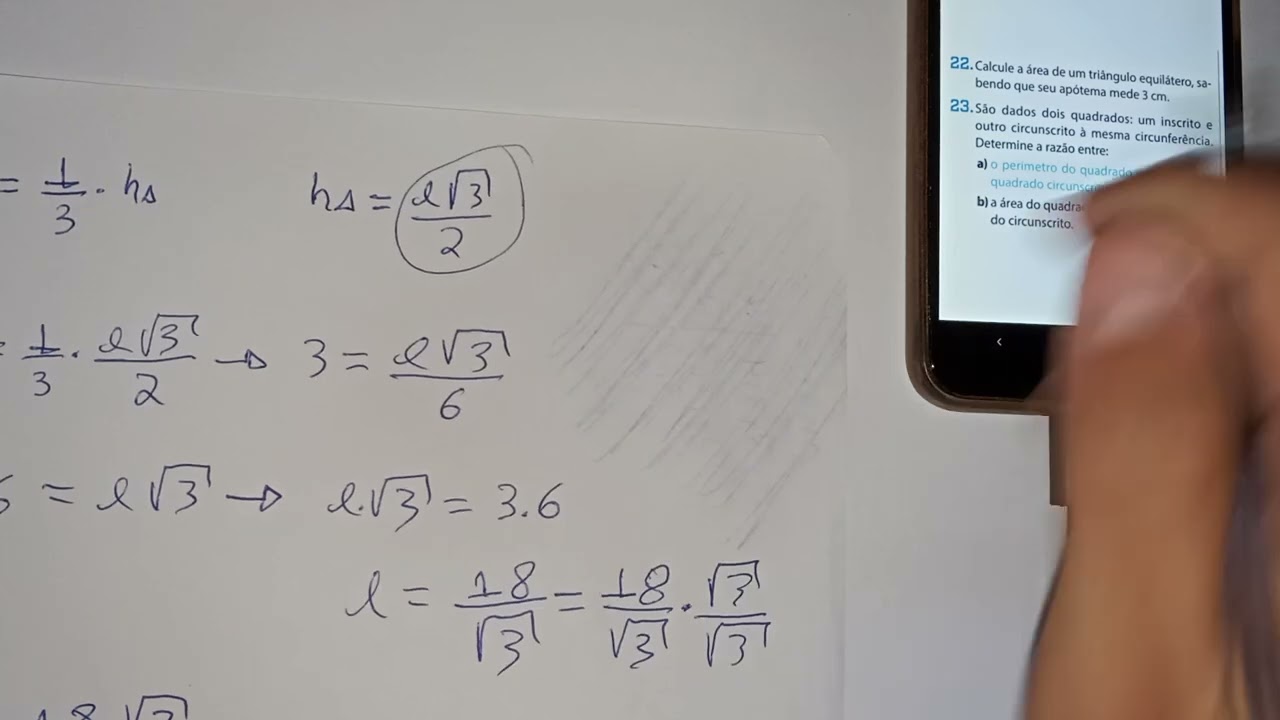 = 1/3 · h△
h△ = l√3/2
1/3 · l√3/2 → 3 = l√3/6
= l√3 → l.√3 = 3.6
l = 18/√3 = 18/√3 · √3/√3
22. Calcule a área de um triângulo equilátero, sa-
bendo que seu apótema mede 3 cm.
23. São dados dois quadrados: um inscrito e
outro circunscrito à mesma circunferência.
Determine a razão entre:
a) o perímetro do quadrado
quadrado
b) a área do
do circunscrito.